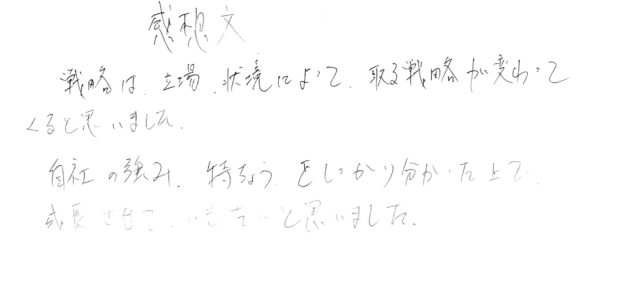 感想文
戦略は、立場、状境によって、取る戦略が変わって
くると思いました。
自社の強み、特ちょう、をしっかり分かった上で、
成長させて、いきたいと思いました。